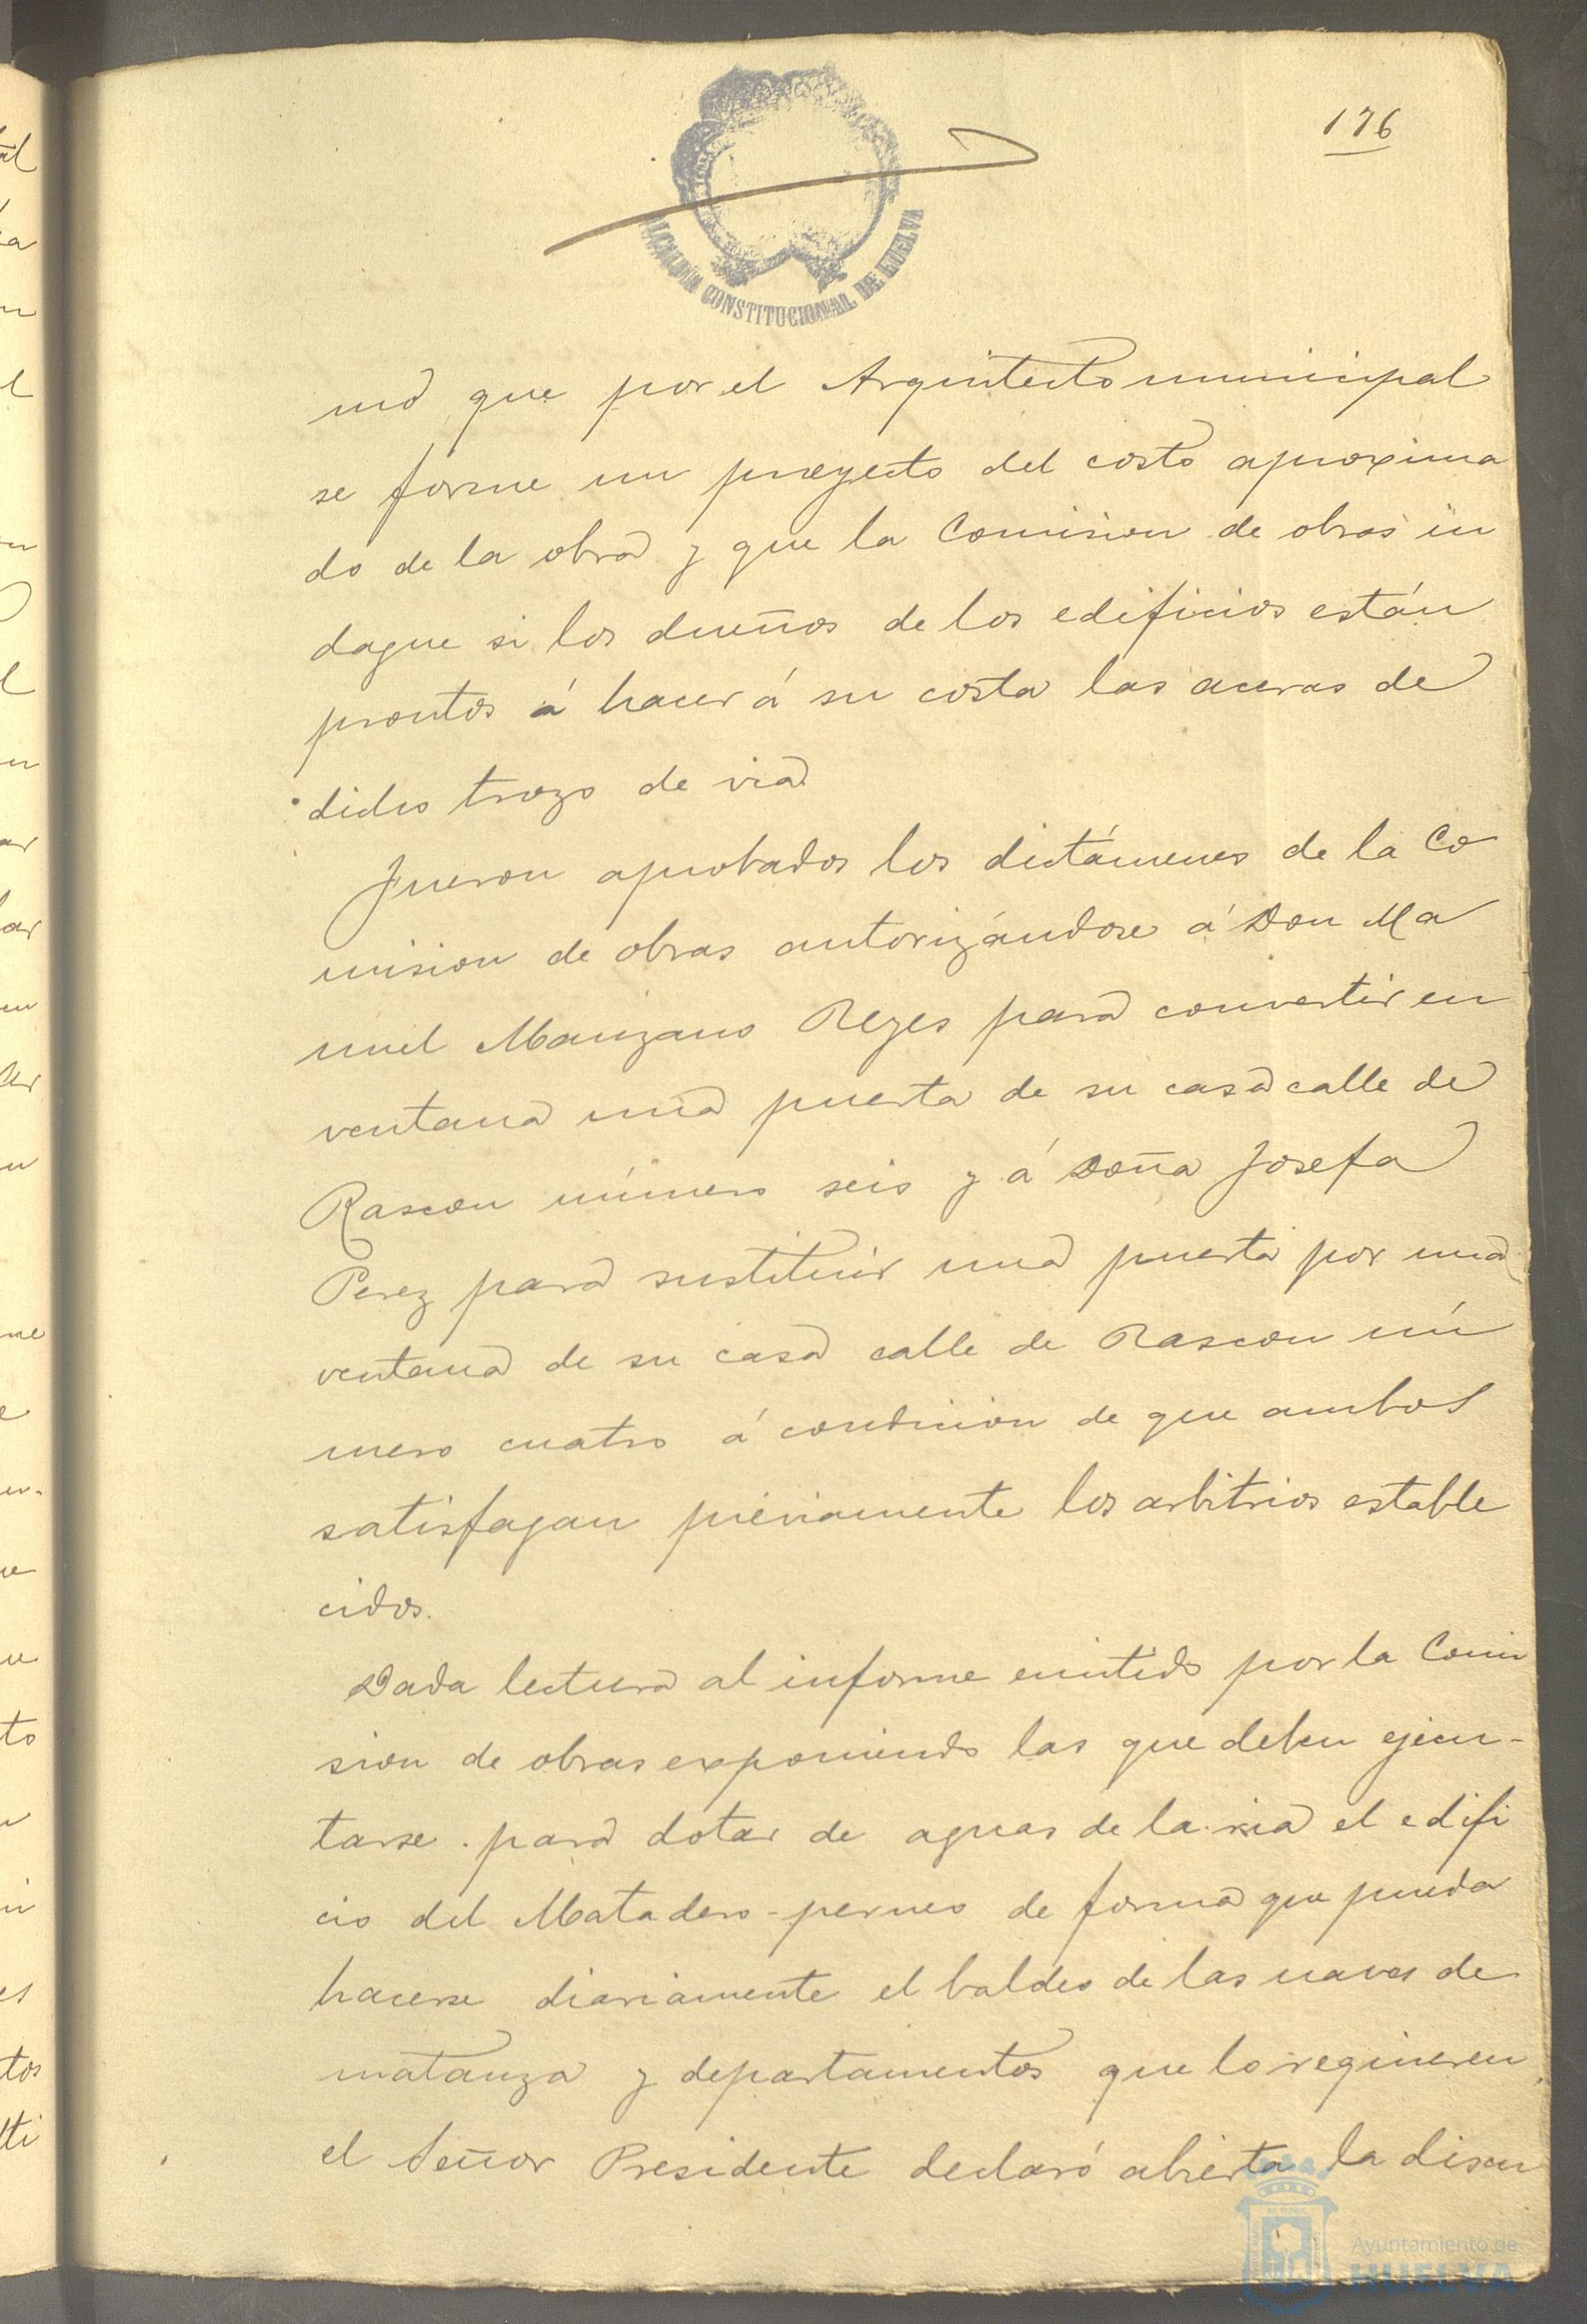 176
ALCALDÍA CONSTITUCIONAL DE HUELVA
mó que por el Arquitecto municipal
se forme un proyecto del costo aproxima
do de la obra y que la Comision de obras in
dague si los dueños de los edificios están
prontos á hacer á su costa las aceras de
dicho trozo de via
Fueron aprobados los dictámenes de la Co
mision de obras autorizándose á Don Ma
nuel Manzano Reyes para convertir en
ventana una puerta de su casa calle de
Rascon número seis y á Doña Josefa
Perez para sustituir una puerta por una
ventana de su casa calle de Rascon nú
mero cuatro á condicion de que ambos
satisfagan préviamente los arbitrios estable
cidos.
Dada lectura al informe emitido por la Comi
sion de obras exponiendo las que deben ejecu-
tarse para dotar de aguas de la ria el edifi
cio del Matadero-perneo de forma que pueda
hacerse diariamente el baldeo de las naves de
matanza y departamentos que lo requieren
el Señor Presidente declaró abierta la discu
Ayuntamiento de
HUELVA